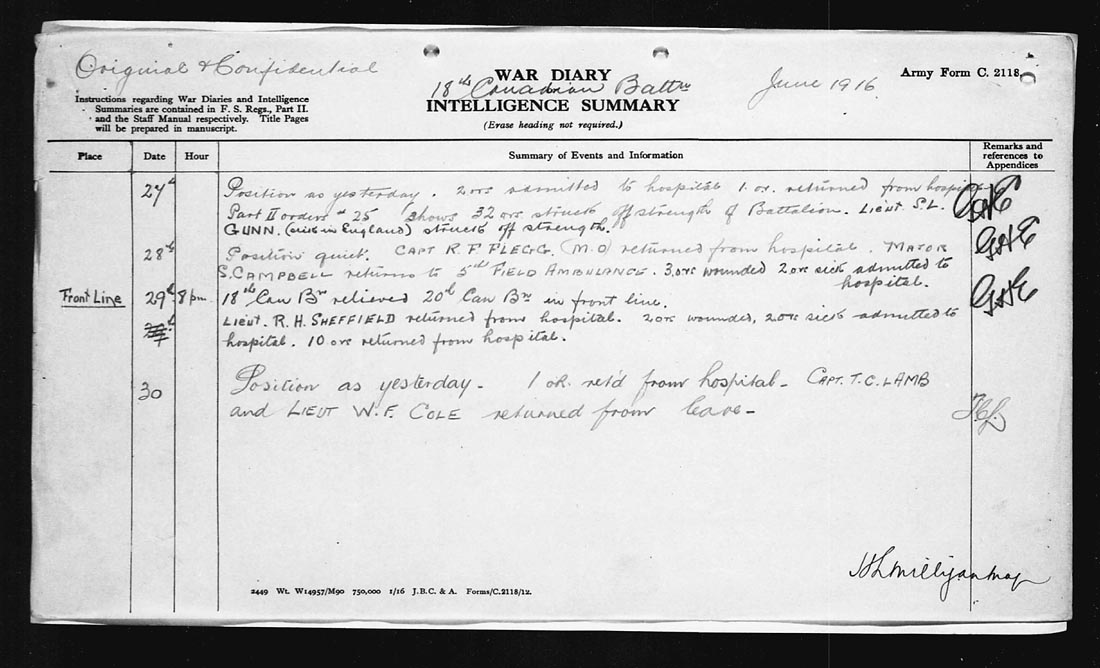 Original & Confidential
WAR DIARY
18th Canadian Battn
INTELLIGENCE SUMMARY
(Erase heading not required.)
June 1916
Army Form C. 2118.
Instructions regarding War Diaries and Intelligence
Summaries are contained in F. S. Regs., Part II.
and the Staff Manual respectively. Title Pages
will be prepared in manuscript.
Place
Date
Hour
Summary of Events and Information
Remarks and
references to
Appendices
27th Position as yesterday. 2 ors admitted to hospital 1 or. returned from hospital
Part II orders # 25 shows 32 ors struck off strength of Battalion. Lieut. S.L.
GUNN. (sick in England) struck off strength.
28th Position quiet. CAPT R. F. FLEGG. (M.O) returned from hospital. MAJOR
S. CAMPBELL returns to 5th FIELD AMBULANCE. 3 ors wounded 2 ors sick admitted to
hospital.
Front Line 29th 8 pm. 18th Can Bn relieved 20th Can Bn in front line.
LIEUT. R. H. SHEFFIELD returned from hospital. 2 ors wounded, 2 ors sick admitted to
hospital. 10 ors returned from hospital.
30 Position as yesterday - 1 or. ret'd from hospital - CAPT. T. C. LAMB
and LIEUT W. F. COLE returned from leave -
H L Milligan Maj
2449 Wt. W14957/M90 750,000 1/16 J.B.C. & A. Forms/C.2118/12.